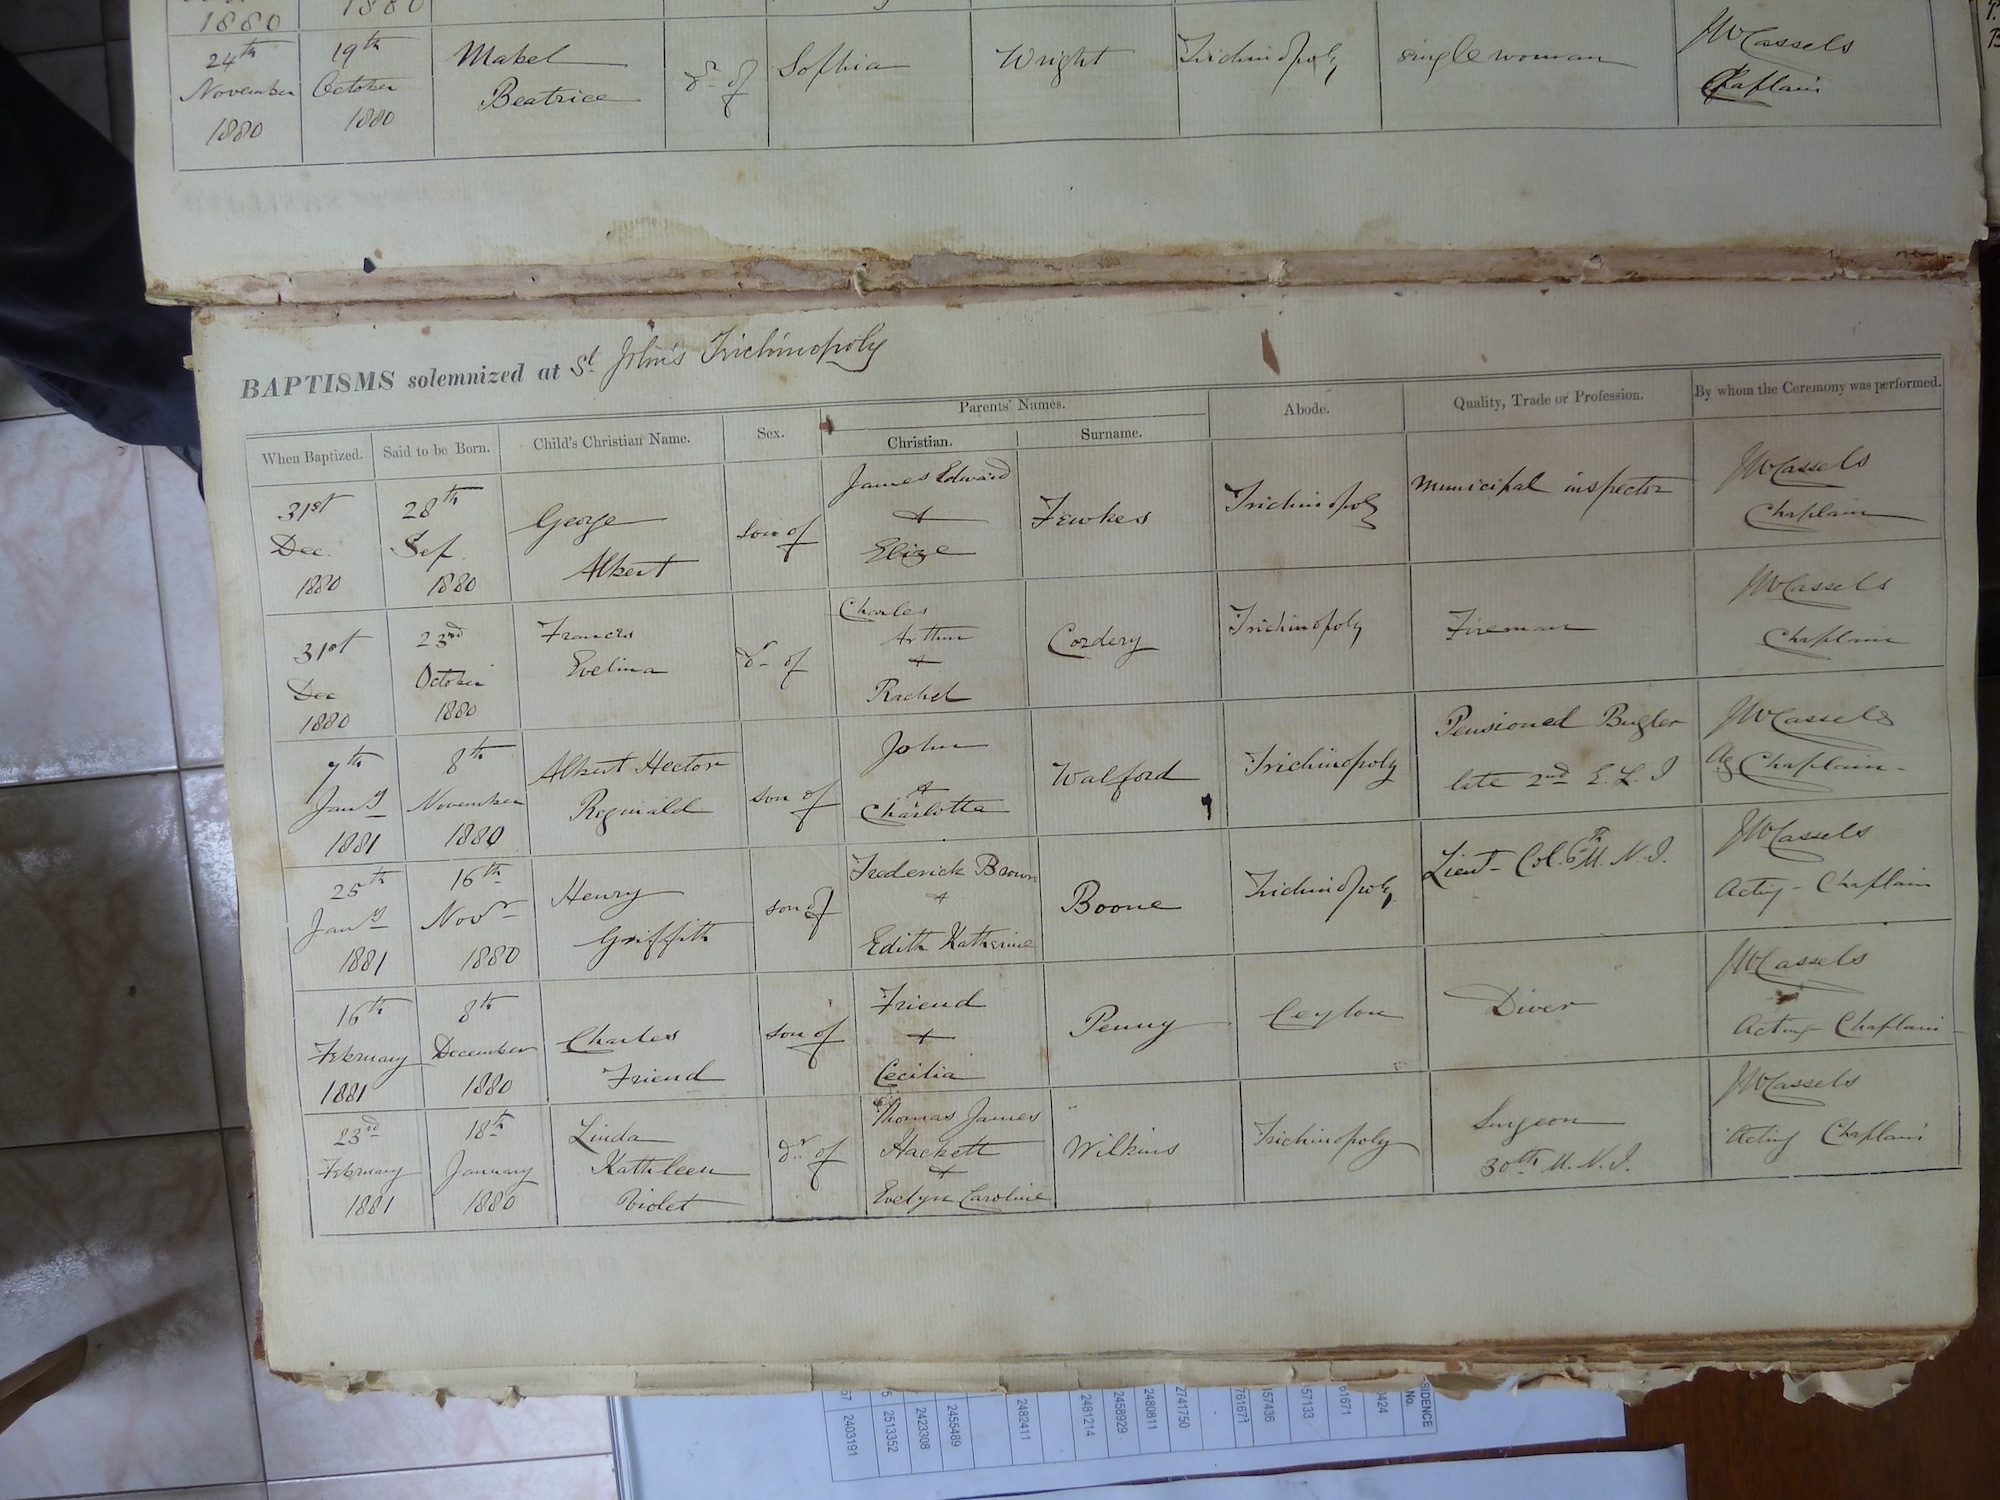 1880 1880
24th November 1880 19th October 1880 Mabel Beatrice dr of Sophia Wright Trichinopoly single woman JWCassels Chaplain
BAPTISMS solemnized at St John's Trichinopoly
When Baptized. Said to be Born. Child's Christian Name. Sex. Parents' Names. Christian. Surname. Abode. Quality, Trade or Profession. By whom the Ceremony was performed.
31st Dec. 1880 28th Sep. 1880 George Albert son of James Edward + Eliza Fewkes Trichinopoly Municipal inspector JWCassels Chaplain
31st Dec 1880 23rd October 1880 Frances Evelina dr of Charles Arthur + Rachel Cordery Trichinopoly Fireman JWCassels Chaplain
7th Jany 1881 8th November 1880 Albert Hector Reginald son of John + Charlotte Walford Trichinopoly Pensioned Bugler late 2nd E. L. I JWCassels Ag Chaplain
25th Jany 1881 16th Novr 1880 Henry Griffith son of Frederick Brown + Edith Katherine Boone Trichinopoly Lieut- Col. 6th M. N. I. JWCassels Acting - Chaplain
16th February 1881 8th December 1880 Charles Friend son of Friend + Cecilia Penny Ceylon Diver JWCassels Acting Chaplain
23rd February 1881 18th January 1880 Linda Kathleen Violet dr of Thomas James Hackett + Evelyn Caroline Wilkins Trichinopoly Surgeon 30th M. N. I. JWCassels Acting Chaplain
SIDENCE No.
0424
61671
57133
157436
761671
2741750
2480811
2458929
2481214
2482411
2455489
2423308
2513352
2403191